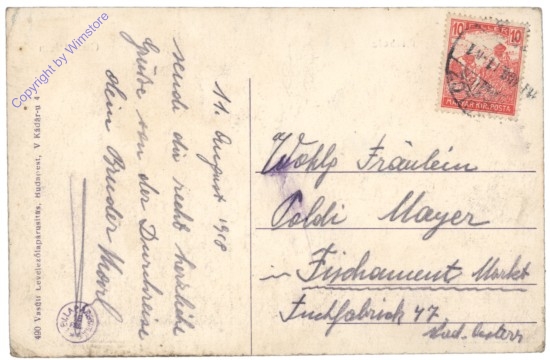 Copyright by Wimstore
11. August 1918
sende dir recht herzliche
Grüße von der Durchreise
dein Bruder Karl
490 Vasúti Levelezőlapárusítás, Budapest, V Kádár-u 4
10 FILLER 10
MAGYAR KIR. POSTA
Wohlg Fräulein
Poldi Mayer
in Fischament Markt
Tuchfabrick 47